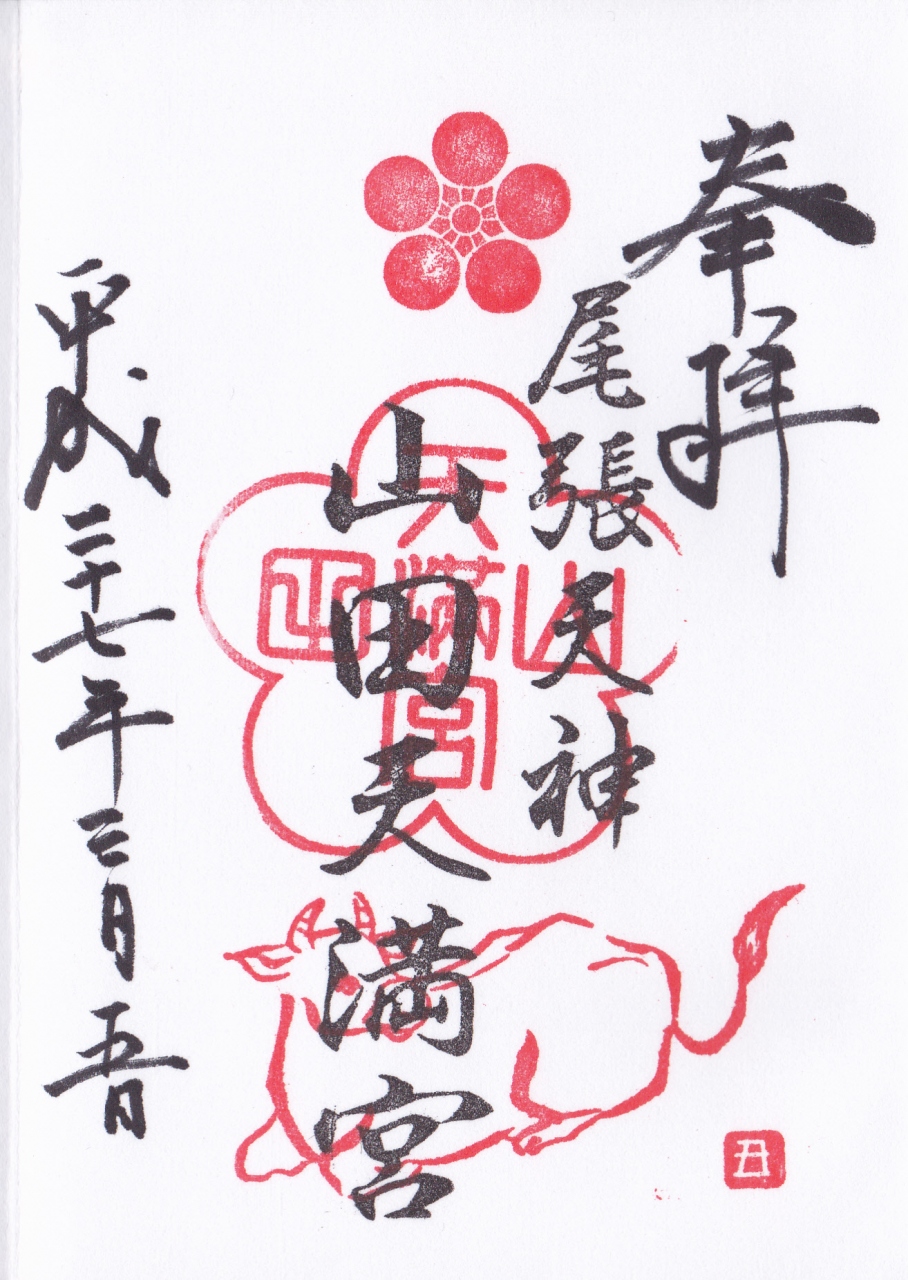 奉拝
尾張天神
山田天満宮
平成二十七年三月五日
山田天満宮
丑